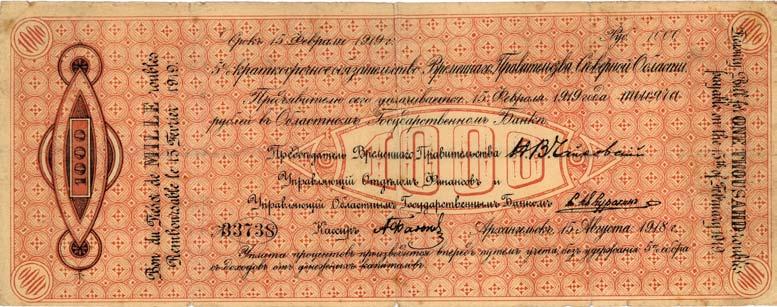 1000
1000
Срокъ 15 Февраля 1919 г.
Руб. 1000
5% краткосрочное обязательство Временнаго Правительства Сѣверной Области.
Предъявителю сего уплачиваетъ 15 Февраля 1919 года тысяча
рублей въ Областномъ Государственномъ Банкѣ
1000
Предсѣдатель Временнаго Правительства Н.В. Чайковскій
Управляющій Отдѣломъ Финансовъ и
Управляющій Областнымъ Государственнымъ Банкомъ
33738
Кассиръ
Архангельскъ, 15 Августа 1918 г.
Уплата процентовъ производится впередъ путемъ учета, безъ удержанія 5% сбора
съ доходовъ отъ денежныхъ капиталовъ.
1000
1000
1000
Bon du Trésor de MILLE roubles
Remboursable le 15 Février 1919.
Treasury Bill for ONE THOUSAND roubles
payable on the 15th of February 1919